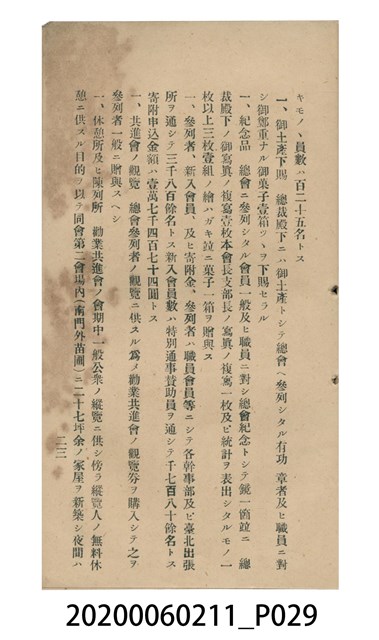 キモノヽ員數ハ百二十五名トス
一、御土產下賜　總裁殿下ニハ御土產トシテ總會ヘ參列シタル有功章者及ヒ職員ニ對
シ御鄭重ナル御菓子壹箱ツヽヲ下賜セラル
一、紀念品　總會ニ參列シタル會員一般及ヒ職員ニ對シ總會紀念トシテ鏡一箇竝ニ　總
裁殿下ノ御寫眞ノ複寫壹枚本會長支部長ノ寫眞ノ複寫一枚及ヒ統計ヲ表出シタルモノ一
枚以上三枚壹組ノ繪ハガキ竝ニ菓子一箱ヲ贈與ス
一、參列者、新入會員、及ヒ寄附金、參列者ハ職員會員等ニシテ各幹事部及ヒ臺北出張
所ヲ通シテ三千八百餘名トス新入會員數ハ特別通事賛助員ヲ通シテ千七百八十餘名トス
寄附申込金額ハ壹萬七千四百七十四圓トス
一、共進會ノ觀覽　總會參列者ノ觀覽ニ供スル爲メ勸業共進會ノ觀覽劵ヲ購入シテ之ヲ
參列者一般ニ贈與スヘシ
一、休憩所及ヒ陳列所　勸業共進會ノ會期中一般公衆ノ縱覽ニ供シ傍ラ縱覽人ノ無料休
憩ニ供スル目的ヲ以テ同會第二會場內(南門外苗圃)ニ二十七坪余ノ家屋ヲ新築シ夜間ハ
二三
20200060211_P029